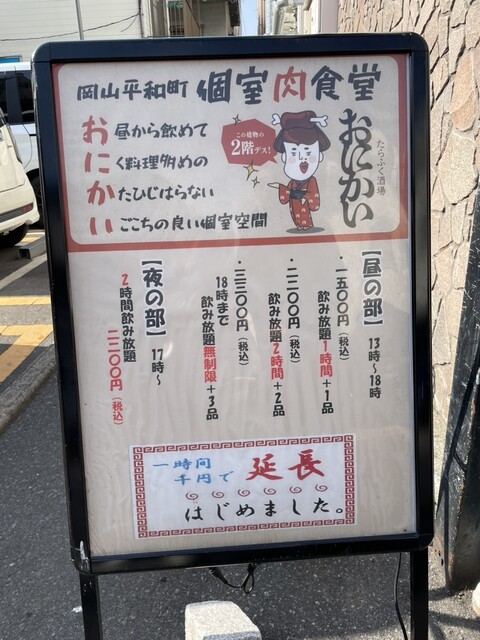 岡山平和町 個室肉食堂
お昼から飲めて
にく料理多めの
かたひじはらない
いごこちの良い個室空間
この建物の
2階デス!
たらふく酒場
おにかい
【昼の部】13時〜18時
・一五〇〇円(税込)
飲み放題1時間+1品
・二二〇〇円(税込)
飲み放題2時間+2品
・三三〇〇円(税込)
18時まで
飲み放題無制限+3品
【夜の部】17時〜
2時間飲み放題
二二〇〇円(税込)
一時間
千円で
延長
はじめました。